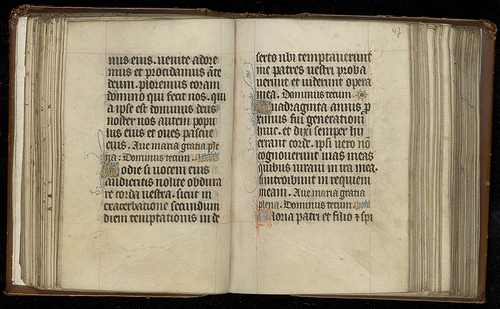 nus eius. venite adore
mus et procidamus ante
deum. ploremus coram
domino qui fecit nos. qui
a ipse est dominus deus
noster nos autem popu
lus eius et oves pascue
eius. Ave maria gratia ple
na: Dominus tecum.
Hodie si vocem eius
audieritis nolite obdura
re corda vestra. sicut in
exacerbatione secundum
diem temptationis in de
47
serto ubi temptaverunt
me patres vestri proba
verunt et viderunt opera
mea. Dominus tecum.
Quadraginta annis p
ximus fui generationi
huic. et dixi semper hii
errant corde. ipsi vero nō
cognoverunt vias meas
quibus iuravi in ira mea.
si introibunt in requiem
meam. Ave maria gratia
plena. Dominus tecum
Gloria patri et filio ⁊ spi